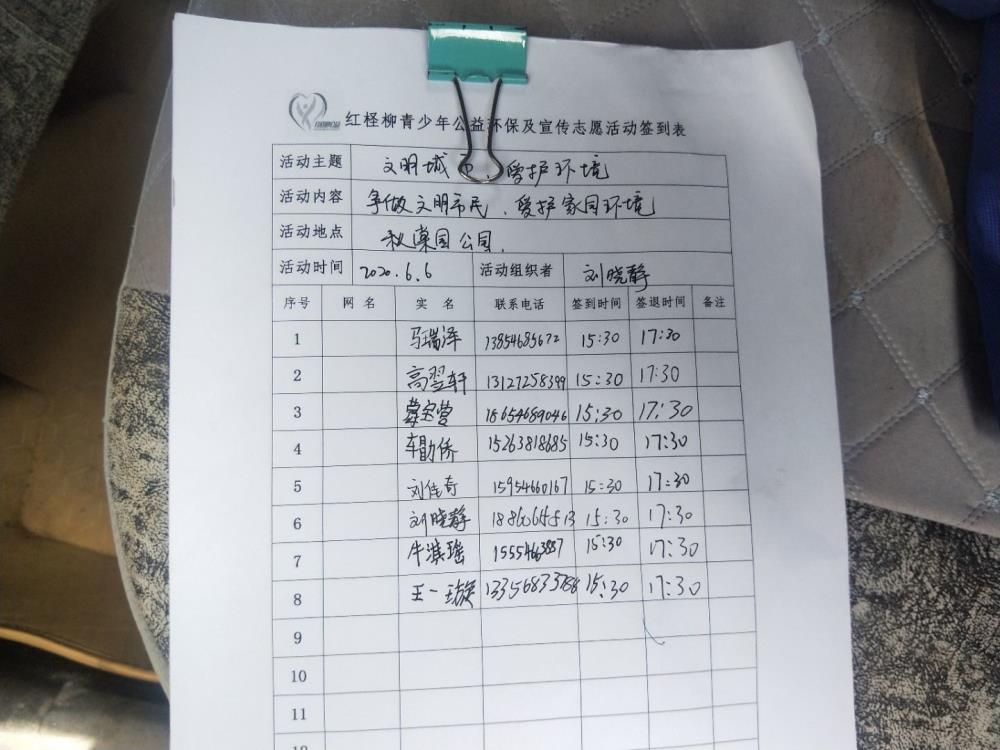 红柽柳青少年公益环保及宣传志愿活动签到表
活动主题 文明城市、爱护环境
活动内容 争做文明市民、爱护家园环境
活动地点 秋棠园公园.
活动时间 2020.6.6 活动组织者 刘晓静
序号 网名 实名 联系电话 签到时间 签退时间 备注
1 马瑞泽 13854685672 15:30 17:30
2 高翌轩 13127258399 15:30 17:30
3 18654689046 15:30 17:30
4 车勖侨 15263818685 15:30 17:30
5 刘佳奇 15954660167 15:30 17:30
6 刘晓静 15:30 17:30
7 牛淇瑶 15:30 17:30
8 王一璇 15:30 17:30
9
10
11